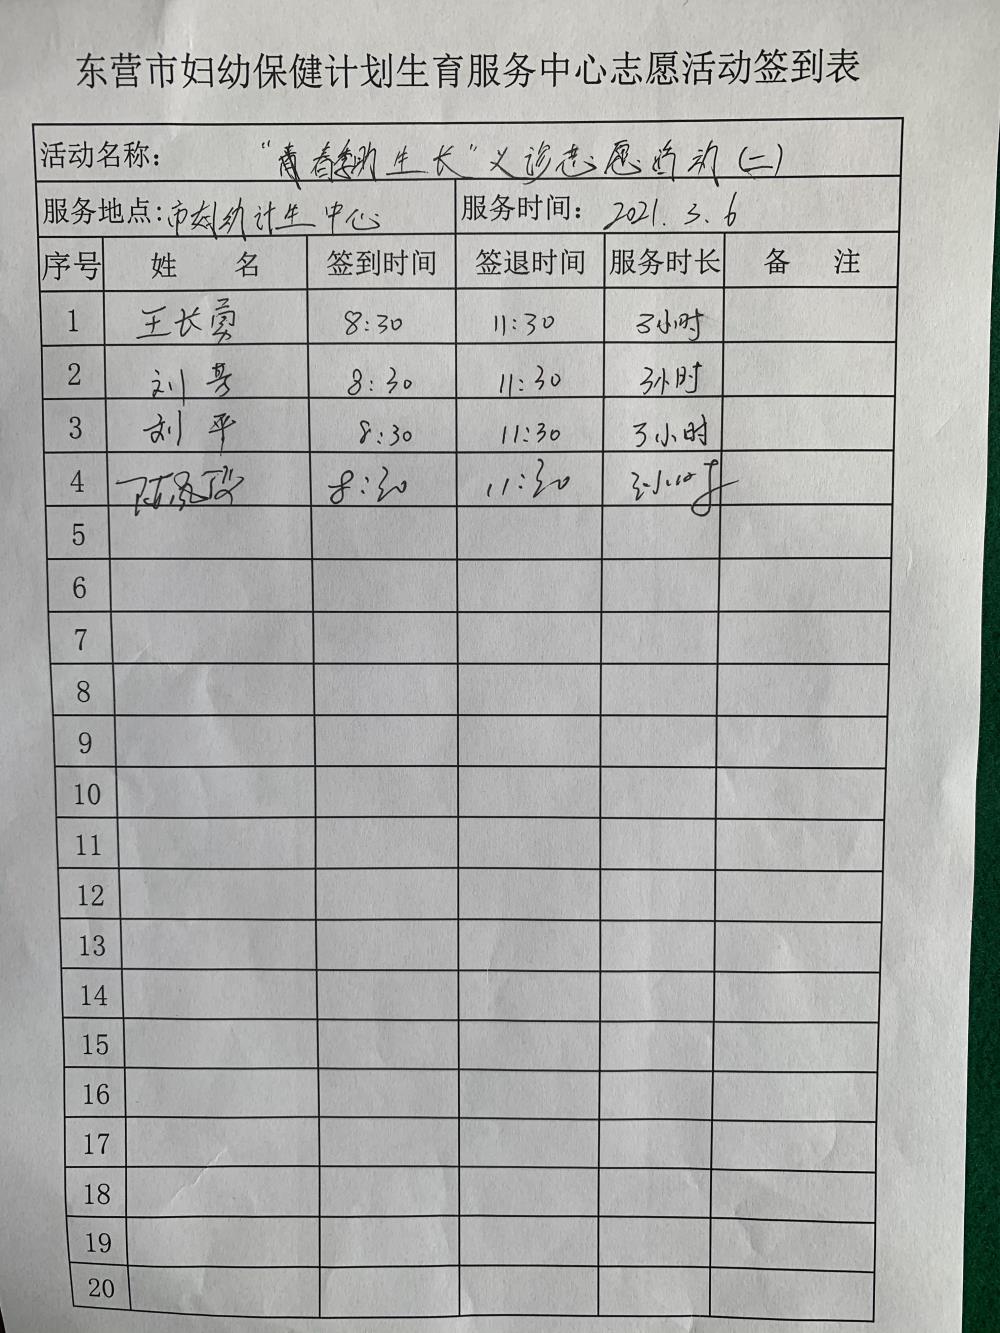 东营市妇幼保健计划生育服务中心志愿活动签到表
活动名称： “青春期助生长”义诊志愿活动（二）
服务地点：市妇幼计生中心 服务时间： 2021.3.6
序号 姓 名 签到时间 签退时间 服务时长 备 注
1 王长勇 8:30 11:30 3小时
2 刘芳 8:30 11:30 3小时
3 刘平 8:30 11:30 3小时
4 8:30 11:30 3小时
5
6
7
8
9
10
11
12
13
14
15
16
17
18
19
20